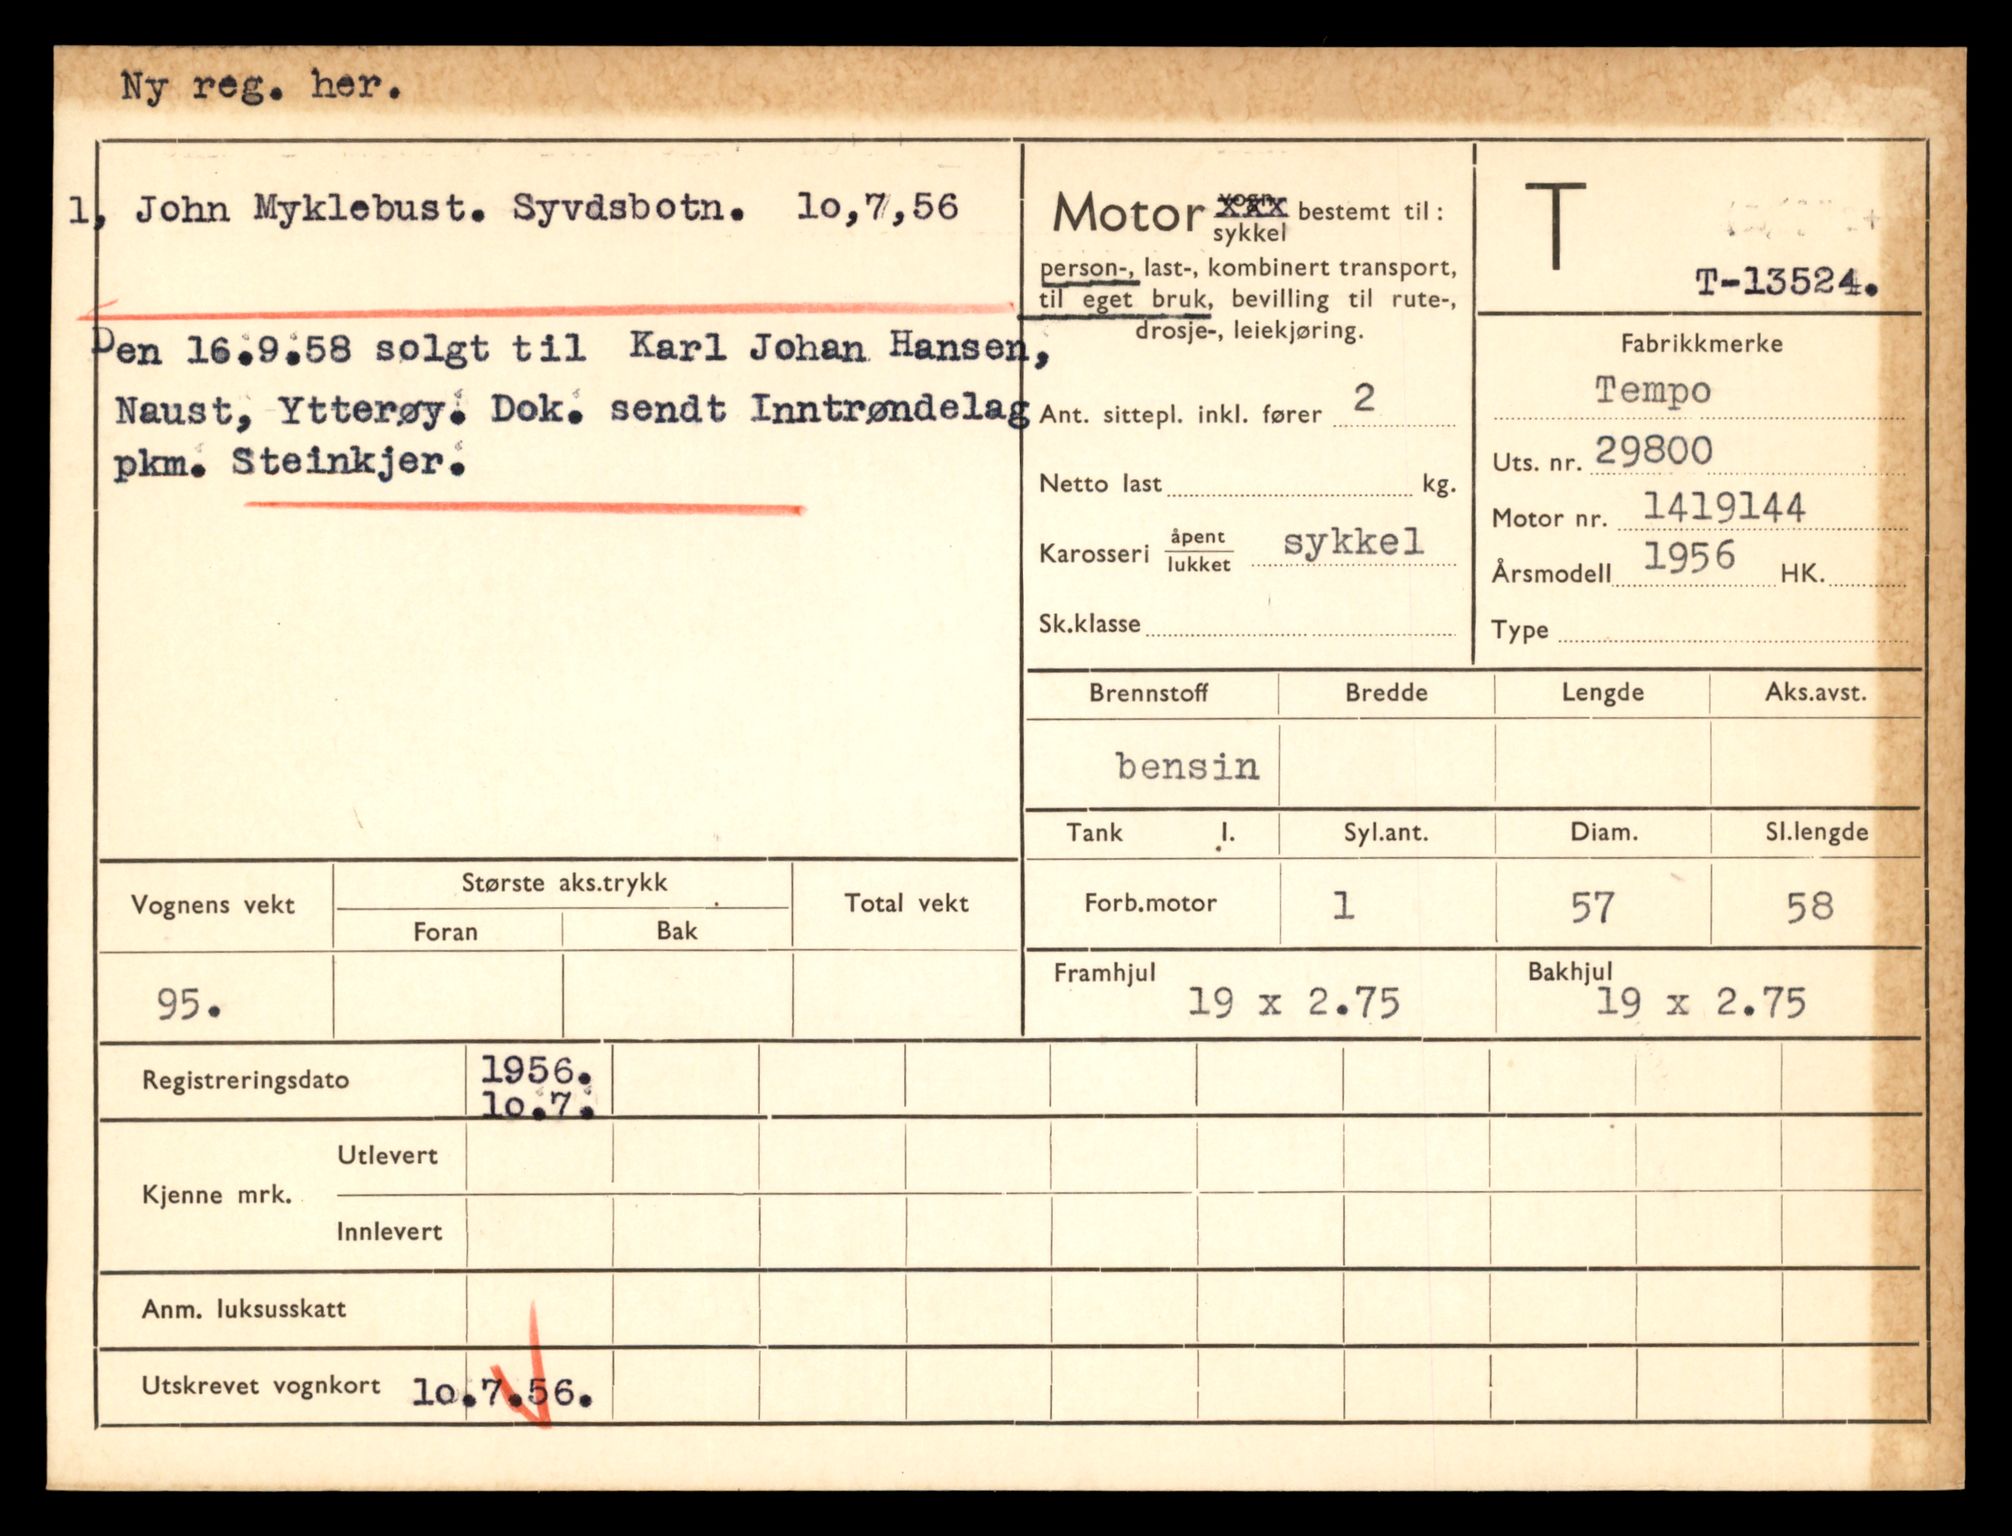 Ny reg. her.
1, John Myklebust. Syvdsbotn. 1o,7,56
Den 16.9.58 solgt til Karl Johan Hansen,
Naust, Ytterøy. Dok. sendt Inntrøndelag
pkm. Steinkjer.
Motor vogn xxx / sykkel bestemt til:
person-, last-, kombinert transport,
til eget bruk, bevilling til rute-,
drosje-, leiekjøring.
Ant. sittepl. inkl. fører 2
Netto last kg.
Karosseri åpent / lukket sykkel
Sk.klasse
T
T-13524.
Fabrikkmerke
Tempo
Uts. nr. 29800
Motor nr. 1419144
Årsmodell 1956 HK.
Type
Brennstoff Bredde Lengde Aks.avst.
bensin
Tank l. Syl.ant. Diam. Sl.lengde
Forb.motor 1 57 58
Framhjul 19 x 2.75 Bakhjul 19 x 2.75
Vognens vekt Største aks.trykk Total vekt
Foran Bak
95.
Registreringsdato 1956.
1o.7.
Kjenne mrk. Utlevert
Innlevert
Anm. luksusskatt
Utskrevet vognkort 1o.7.56.